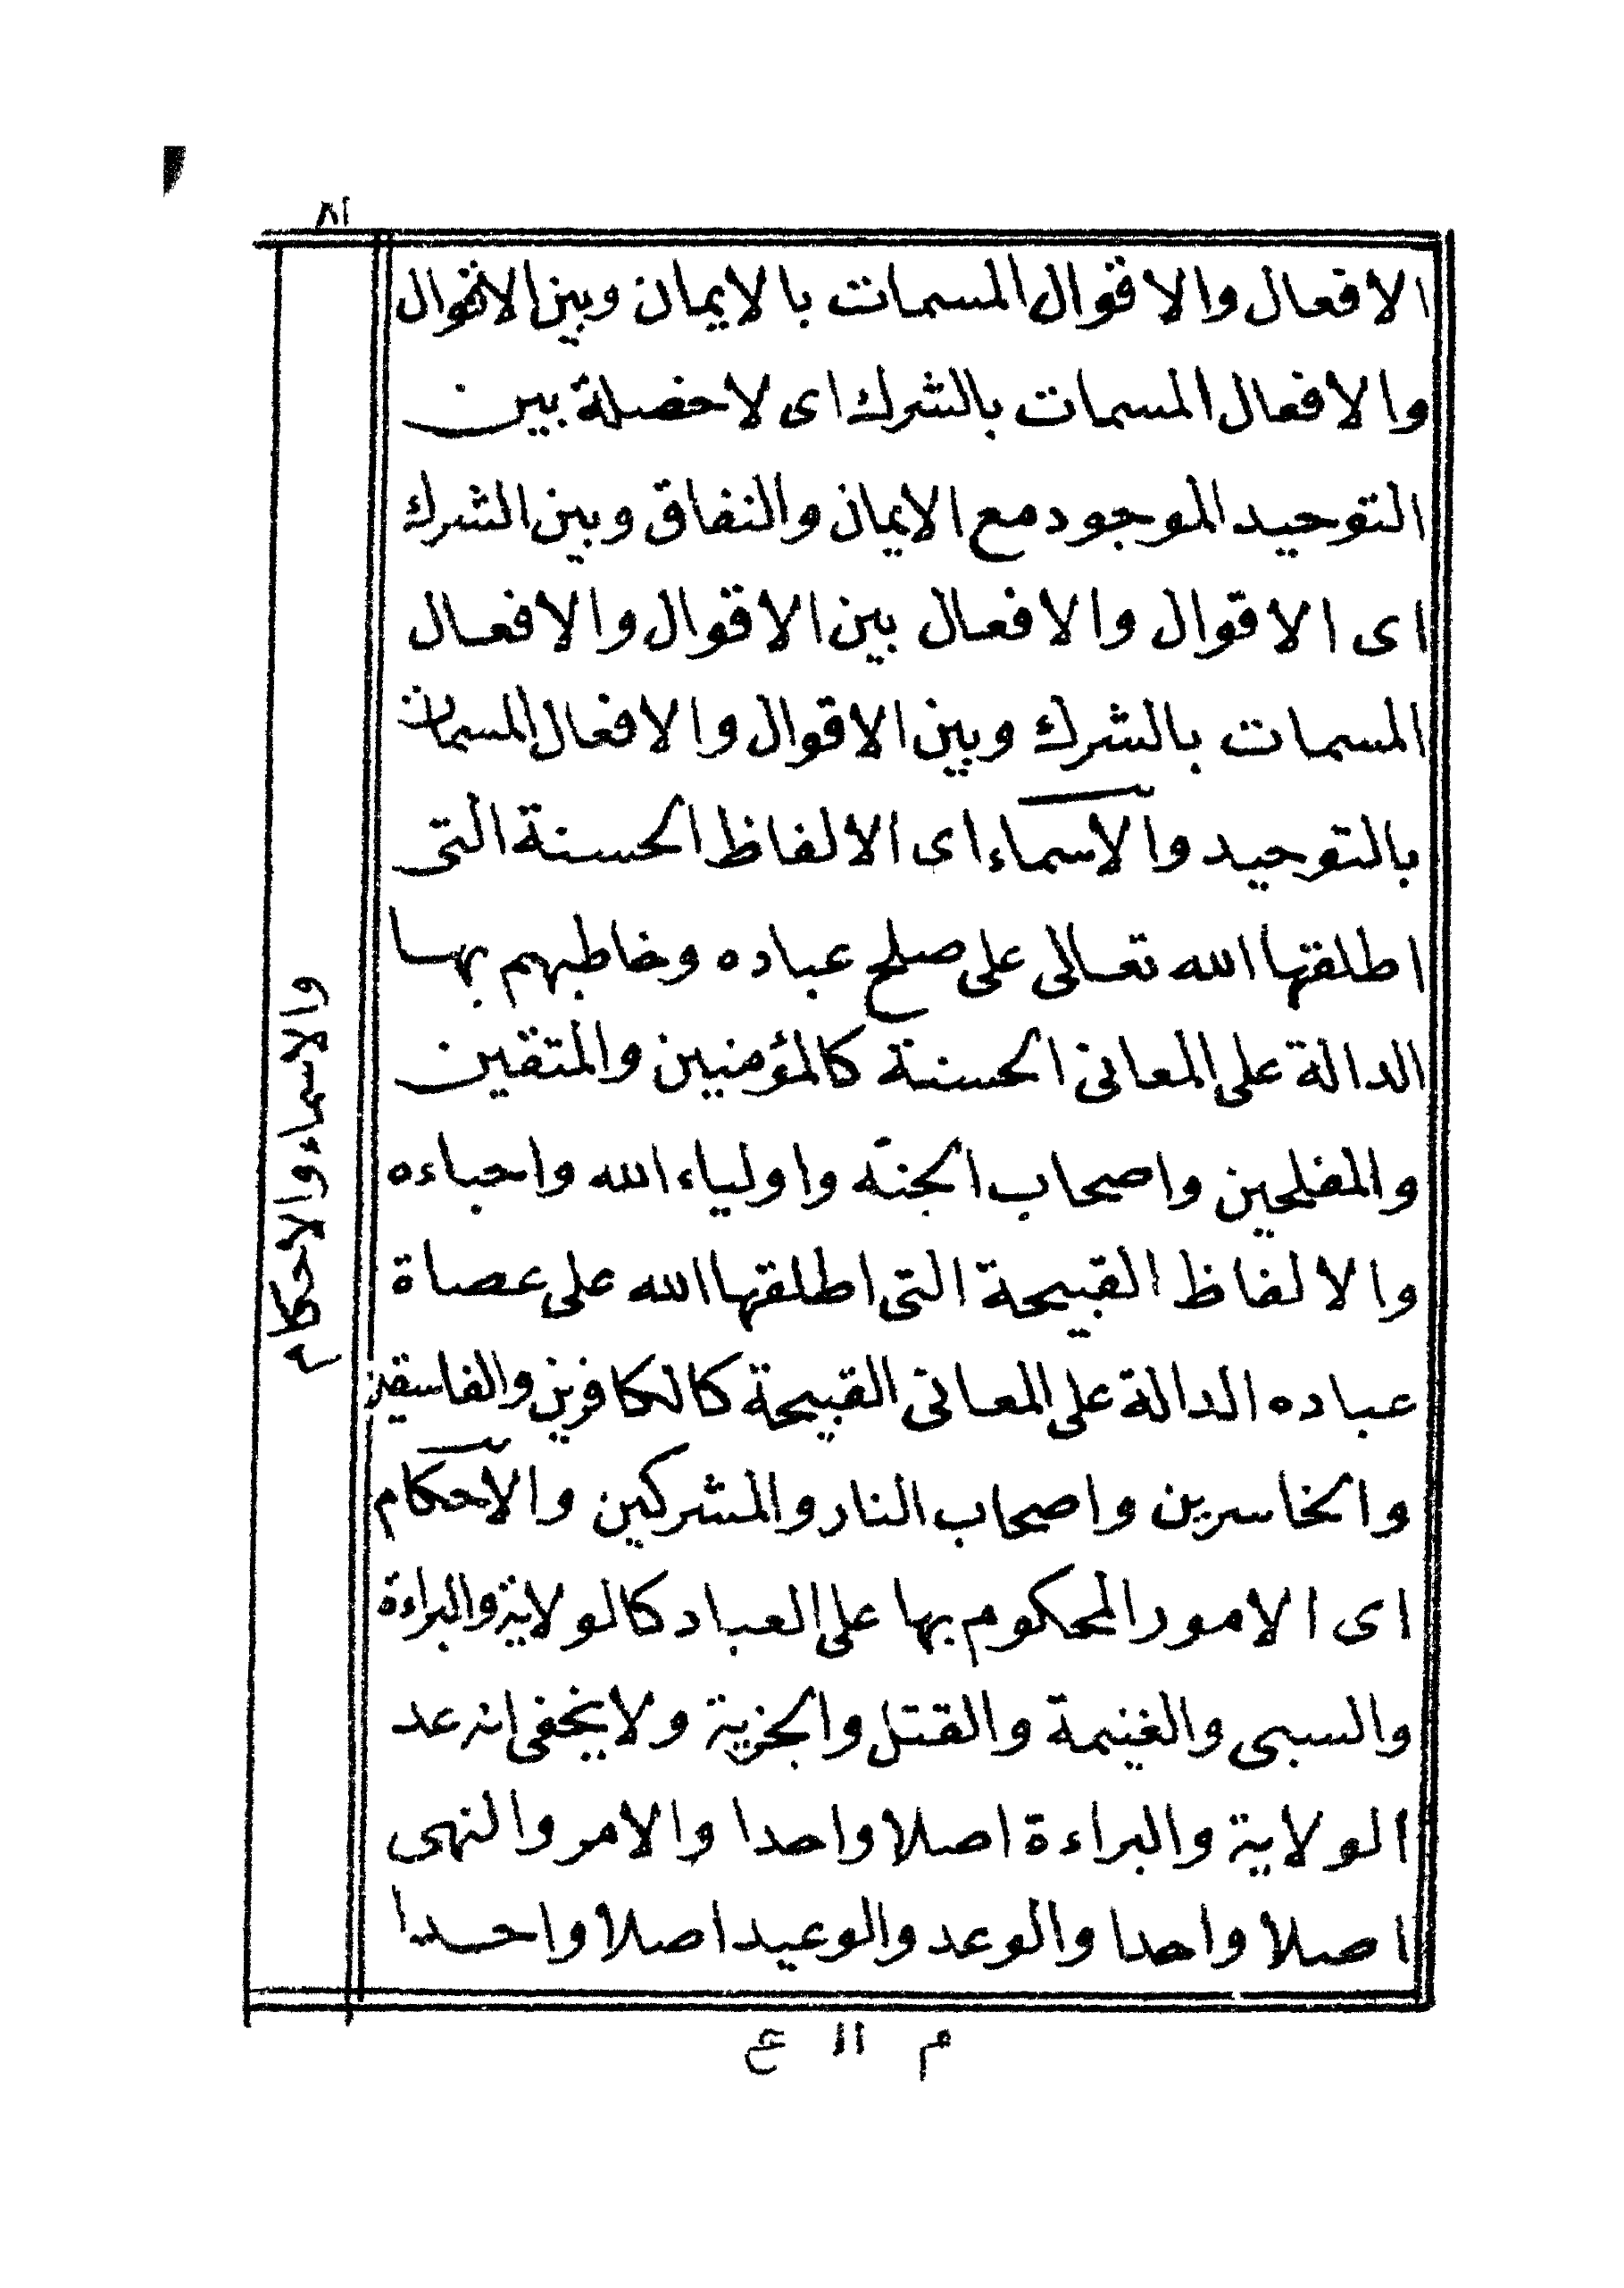 ٨١
الافعال والاقوال المسمات بالايمان وبين الاقوال
والافعال المسمات بالشرك اى لا خصلة بين
التوحيد الموجود مع الايمان والنفاق وبين الشرك
اى الاقوال والافعال بين الاقوال والافعال
المسمات بالشرك وبين الاقوال والافعال المسمات
بالتوحيد والاسماء اى الالفاظ الحسنة التى
اطلقها الله تعالى على صلح عباده وخاطبهم بها
الدالة على المعانى الحسنة كالمؤمنين والمتقين
والمفلحين واصحاب الجنة واولياء الله واحباءه
والالفاظ القبيحة التى اطلقها الله على عصاة
عباده الدالة على المعانى القبيحة كالكافرين والفاسقين
والخاسرين واصحاب النار والمشركين والاحكام
اى الامور المحكوم بها على العباد كالولاية والبراءة
والسبى والغنيمة والقتل والجزية ولا يخفى انه عد
الولاية والبراءة اصلا واحدا والامر والنهى
اصلا واحدا والوعد والوعيد اصلا واحدا
والاسماء والاحكام
م ١١ ع